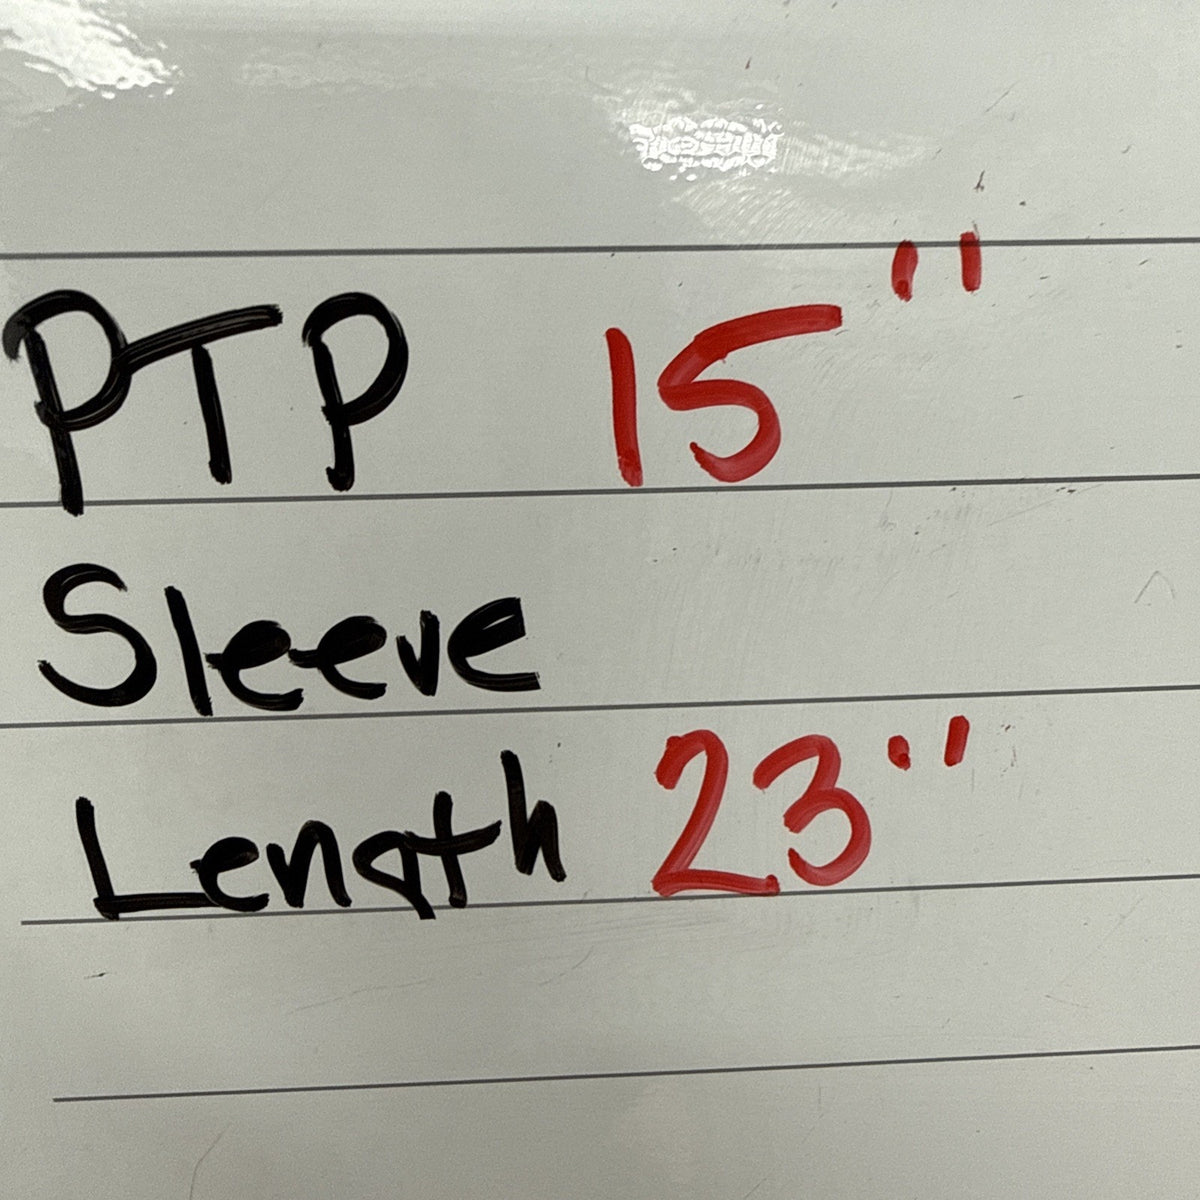 PTP 15"
Sleeve
Length 23"